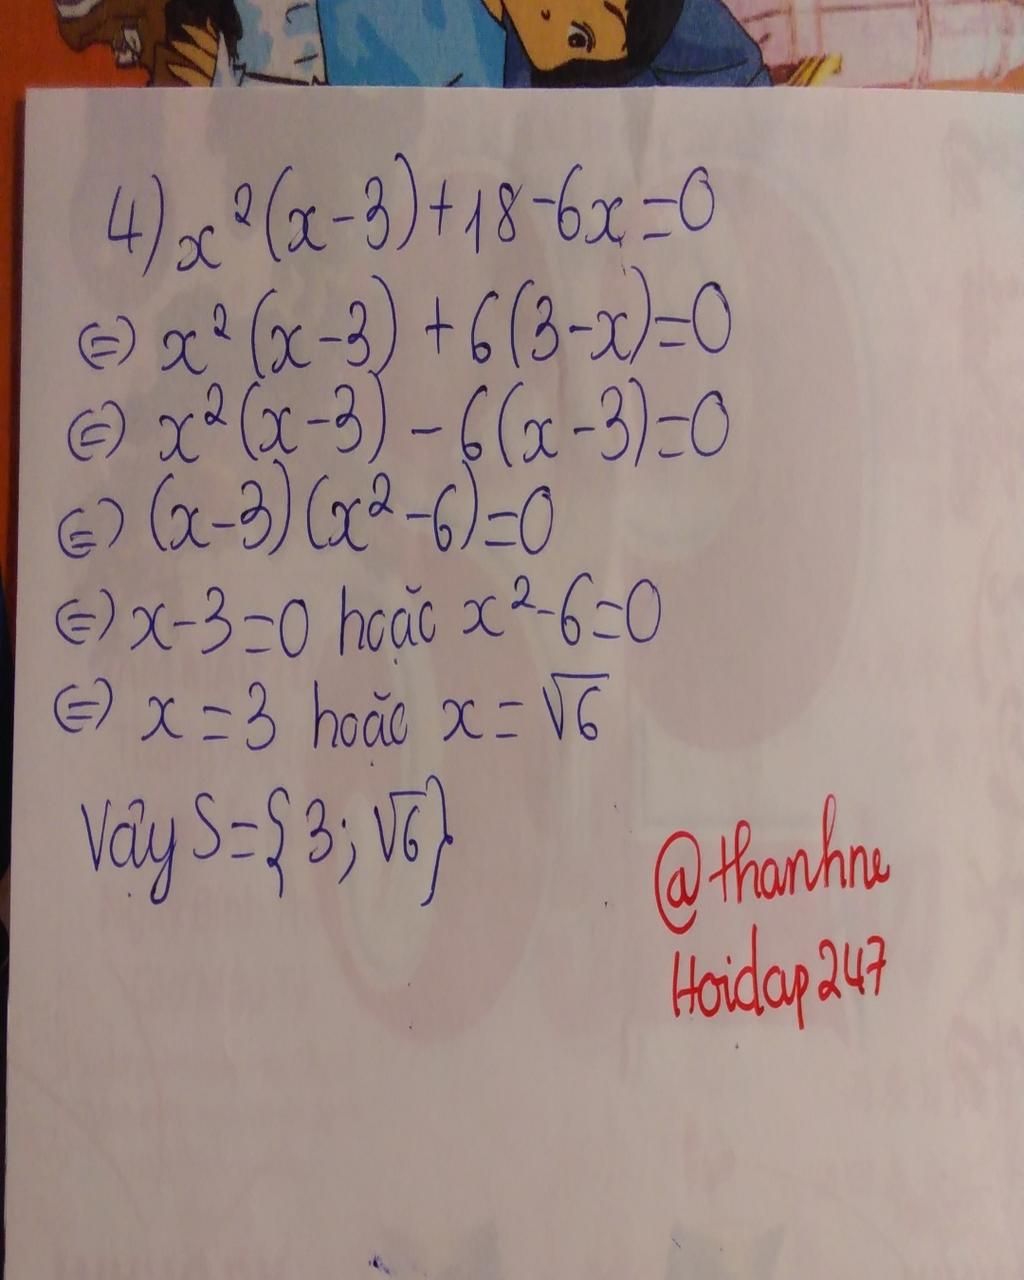 4) x²(x-3)+18-6x=0
(=) x²(x-3) + 6(3-x)=0
(=) x²(x-3) - 6(x-3)=0
(=) (x-3)(x²-6)=0
(=) x-3=0 hoặc x²-6=0
(=) x=3 hoặc x=√6
Vậy S={3;√6}
@thanhne
Hoidap247